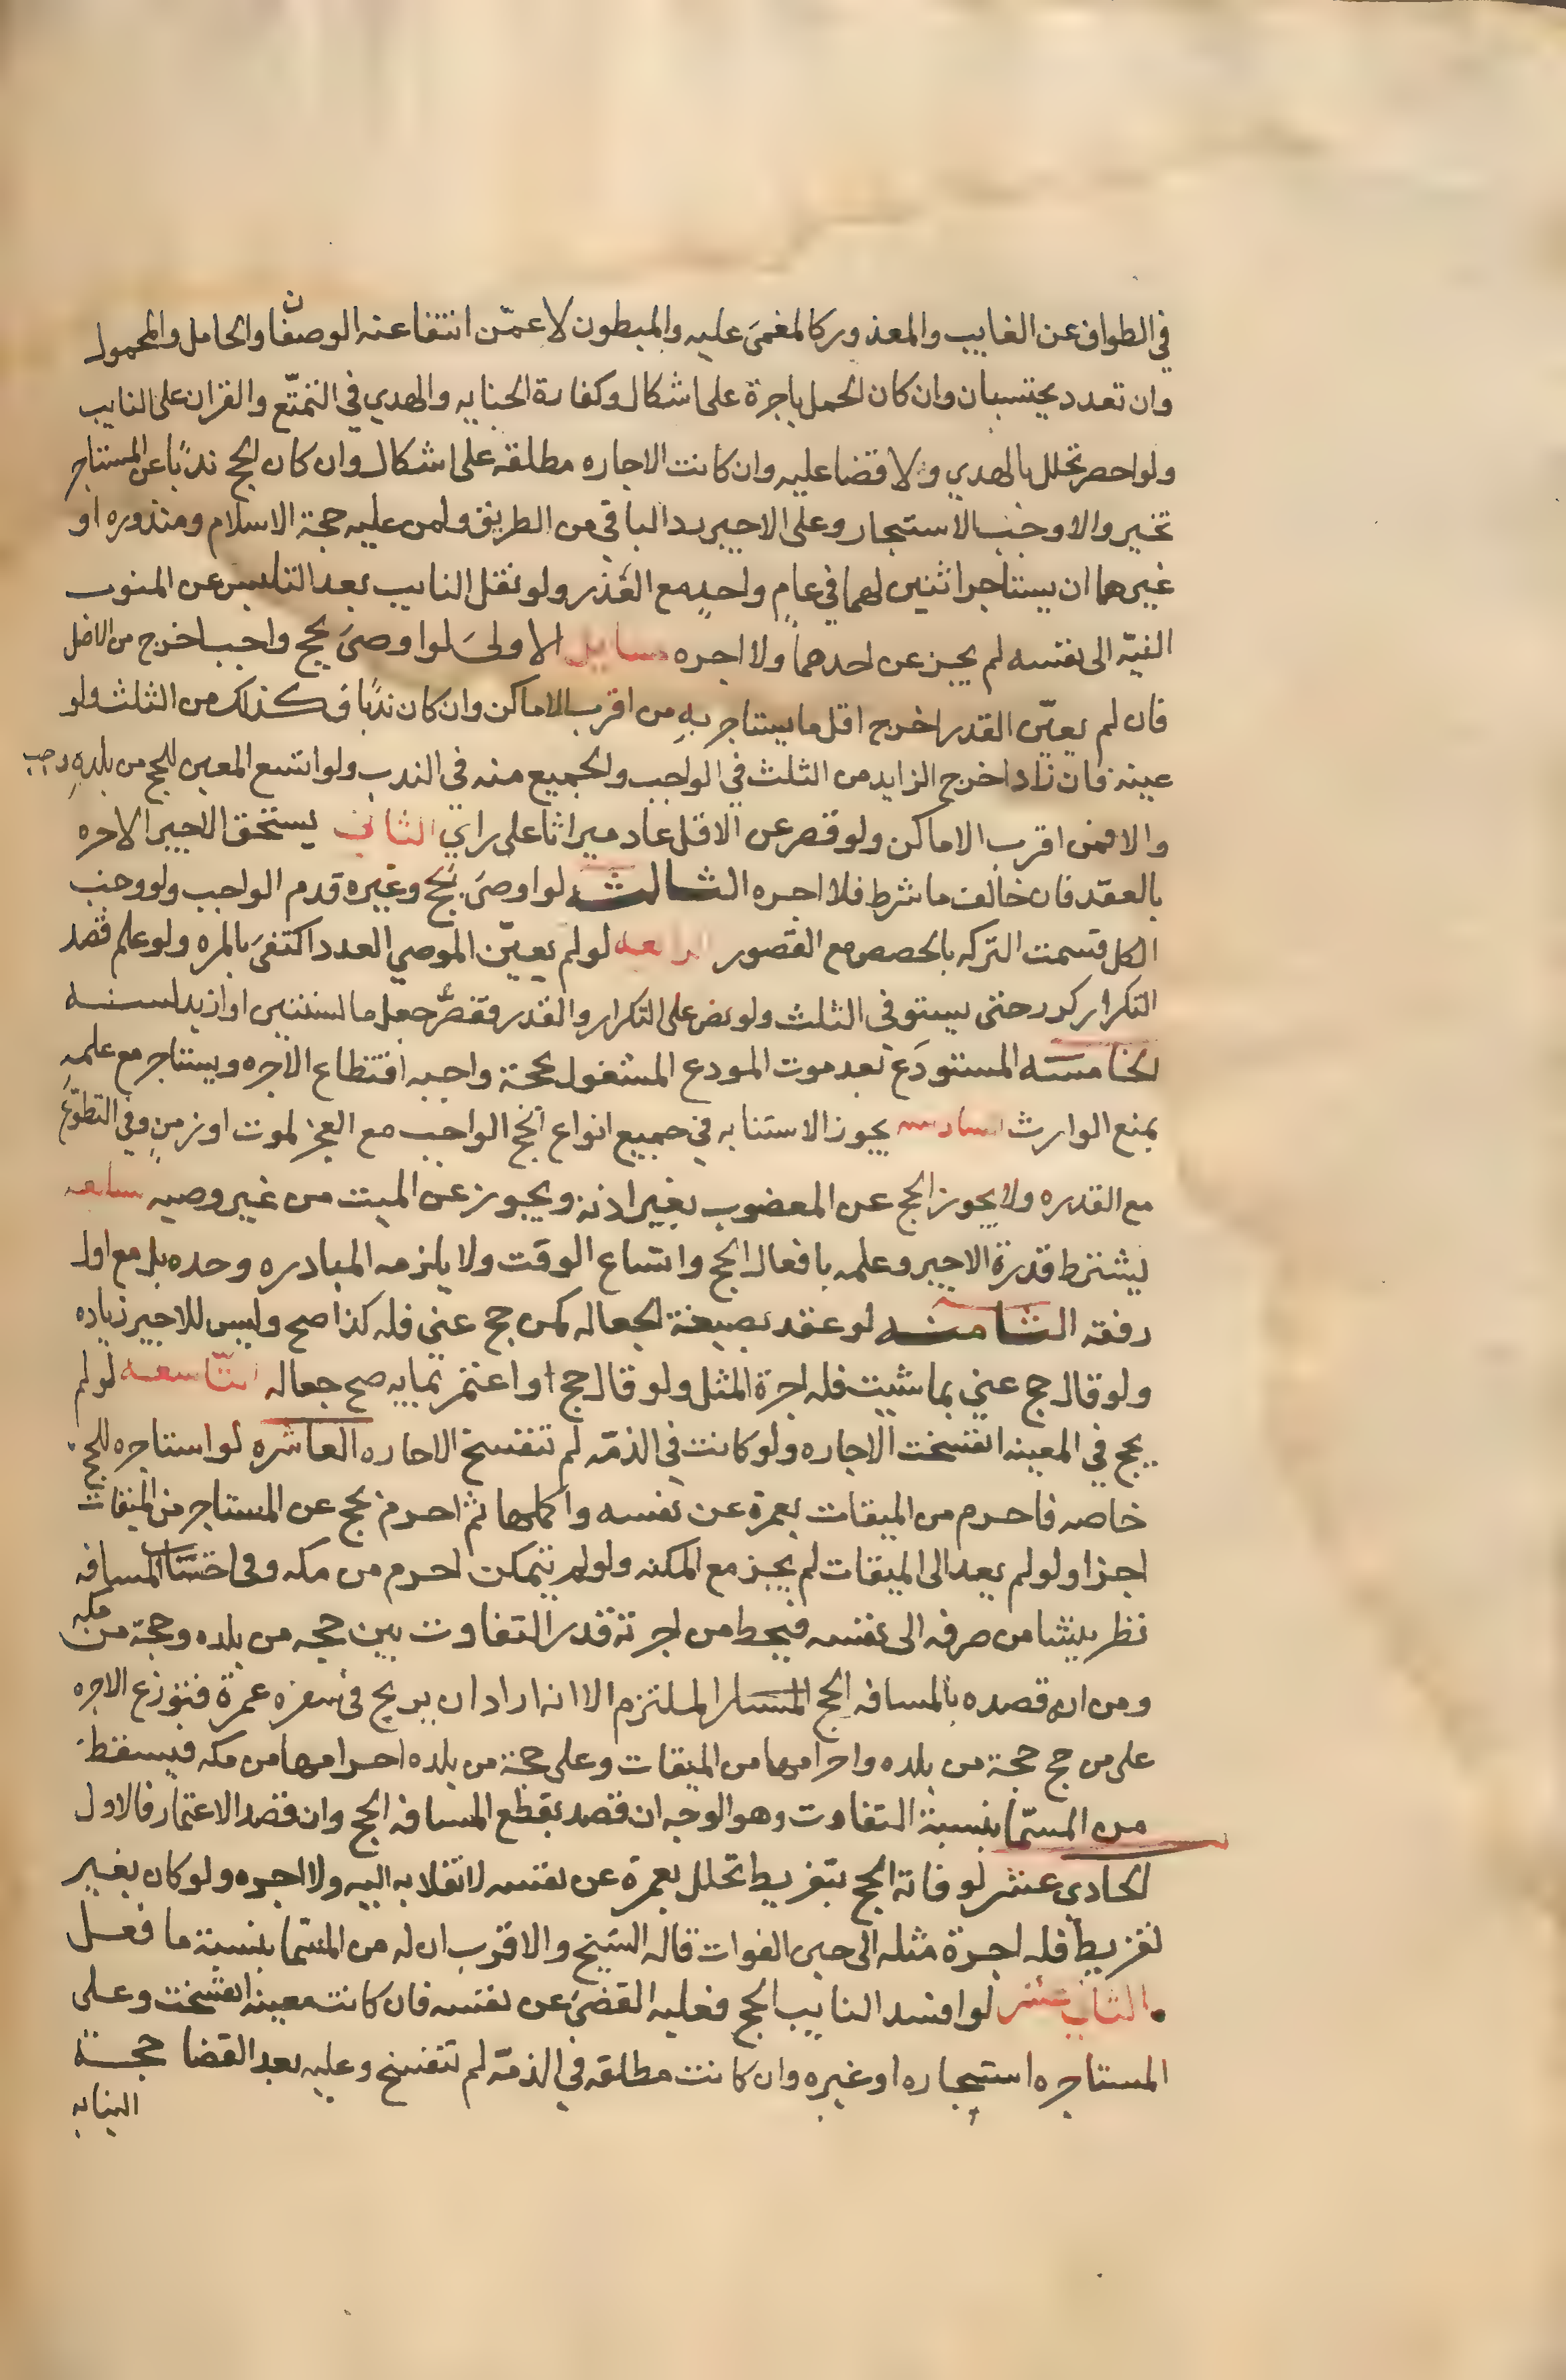 في الطواف عن الغايب والمعذور كالمغمىَ عليه والمبطون لا عمّن انتفا عنه الوصفان والحامل والمحمول
وان تعدد يحتسبان وان كان الحمل باجرة على اشكال وكفارة الجنايه والهدي في التمتّع والقران على النايب
ولو احصر تحلل بالهدي ولا قضا عليه وان كانت الاجاره مطلقه على اشكال وان كان الحج ندبًا عن المستاجر
تخير والا وجب الاستيجار وعلى الاجير رد الباقي من الطريق ولمن عليه حجة الاسلام ومنذوره او
غيرهما ان يستاجر اثنين لهما في عامٍ واحدٍ مع العُذر ولو نقل النايب بعد التلبس عن المنوب
النيّه الى نفسه لم يجز عن احدهما ولا اجره مسايل الاولىَ لو اوصىَ بحج واجب اخرج من الاصل
فان لم يعيّن القدر اخرج اقل ما يستاجر بهِ من اقرب الاماكن وان كان ندبًا فكذلك من الثلث ولو
عينه فان زاد اخرج الزايد من الثلث في الواجب والجميع منه في الندب ولو اتسع المعين للحج من بلدهِ وجب
والا فمن اقرب الاماكن ولو قصر عن الاقل عاد ميراثا على راي الثاني يستحق الاجير الاجره
بالعقد فان خالف ما شرط فلا اجره الثالث لو اوصىَ بحج وغيره قدم الواجب ولو وجب
الكل قسمت التركه بالحصص مع القصور الرابعه لو لم يعيّن الموصي العدد اكتفىَ بالمره ولو علم قصد
التكرار كرر حتى يستوفى الثلث ولو نص على التكرار والقدر فقصرَ جعل ما لسنتين او ازيد لسنه
الخامسه المستودَع بعد موت المودع المشغول بحجة واجبه اقتطاع الاجره ويستاجر مع علمهِ
بمنع الوارث السادسه يجوز الاستنابه في جميع انواع الحج الواجب مع العجز لموت او زمنٍ وفي التطوّع
مع القدره ولا يجوز الحج عن المعضوب بغير اذنه ويجوز عن الميت من غير وصيه السابعه
يشترط قدرة الاجير وعلمه بافعال الحج واتساع الوقت ولا يلزمه المبادره وحده بل مع اول
رفقه الثامنه لو عقد بصيغة الجعاله كمن حج عني فله كذا صح وليس للاجير زياده
ولو قال حج عني بما شيت فله اجرة المثل ولو قال حج او اعتمر بمايه صح جعاله التاسعه لو لم
يحج في المعينه انفسخت الاجاره ولو كانت في الذمّه لم تنفسخ الاجاره العاشره لو استاجره للحج
خاصه فاحرم من الميقات بعمرة عن نفسه واكملها ثم احرم بحج عن المستاجر من الميقات
اجزا ولو لم يعد الى الميقات لم يجز مع المكنه ولو لم يتمكن احرم من مكه وفي احتساب المسافه
نظر ينشا من صرفه الى نفسه فيحط من اجرته قدر التفاوت بين حجه من بلده وحجة من مكه
ومن ان قصده بالمسافه الحج الملتزم الا انه اراد ان يربح في سفره عمرة فتوزع الاجره
على من حج حجة من بلده واحرامها من الميقات وعلى حجة من بلده احرامها من مكه فيسقط
من المسمّا بنسبة التفاوت وهو الوجه ان قصد بقطع المسافه الحج وان قصد الاعتمار فالاول
الحادي عشر لو فاته الحج بتفريط تحلل بعمرة عن نفسه لانقلابه اليه ولا اجره ولو كان بغير
تفريط فله اجرة مثله الى حين الفوات قاله الشيخ والاقرب ان له من المسمّا بنسبة ما فعل
الثاني عشر لو افسد النايب الحج فعليه القضىَ عن نفسه فان كانت معينه انفسخت وعلى
المستاجره استيجاره او غيره وان كانت مطلقه في الذمّه لم تنفسخ وعليه بعد القضا حجة
النيابه